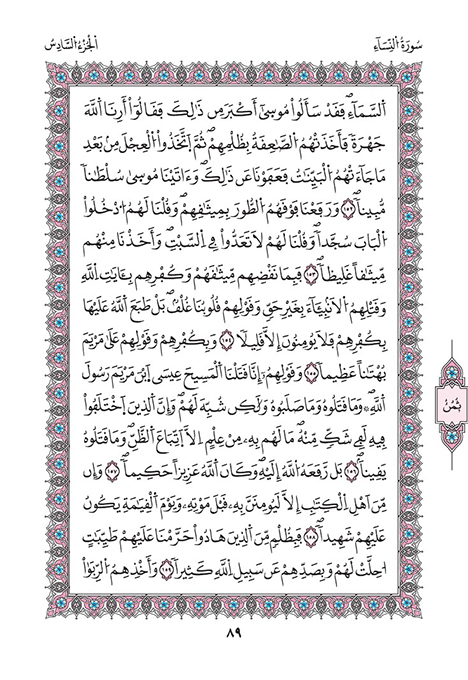 سُورَةُ اُلنِّسَآءِ
اَلْجُزْءُ اُلسَّادِسُ
اَلسَّمَآءِۖ فَقَدْ سَأَلُواْ مُوسَىٰٓ أَكْبَرَ مِن ذَٰلِكَ فَقَالُوٓاْ أَرِنَا اَللَّهَ
جَهْرَةٗ فَأَخَذَتْهُمُ اُلصَّٰعِقَةُ بِظُلْمِهِمْۖ ثُمَّ اَتَّخَذُواْ اُلْعِجْلَ مِنۢ بَعْدِ
مَا جَآءَتْهُمُ اُلْبَيِّنَٰتُ فَعَفَوْنَا عَن ذَٰلِكَۖ وَءَاتَيْنَا مُوسَىٰ سُلْطَٰناٗ
مُّبِيناٗۖ ١٥٢ وَرَفَعْنَا فَوْقَهُمُ اُلطُّورَ بِمِيثَٰقِهِمْ وَقُلْنَا لَهُمُ اُدْخُلُواْ
اُلْبَابَ سُجَّداٗۖ وَقُلْنَا لَهُمْ لَا تَعَدُّواْ فِي اِلسَّبْتِۖ وَأَخَذْنَا مِنْهُم
مِّيثَٰقاً غَلِيظاٗۖ ١٥٣ فَبِمَا نَقْضِهِم مِّيثَٰقَهُمْ وَكُفْرِهِم بِـَٔايَٰتِ اِللَّهِ
وَقَتْلِهِمُ اُلَانۢبِئَآءَ بِغَيْرِ حَقّٖ وَقَوْلِهِمْ قُلُوبُنَا غُلْفُۢۖ بَلْ طَبَعَ اَللَّهُ عَلَيْهَا
بِكُفْرِهِمْ فَلَا يُومِنُونَ إِلَّا قَلِيلاٗۖ ١٥٤ وَبِكُفْرِهِمْ وَقَوْلِهِمْ عَلَىٰ مَرْيَمَ
بُهْتَٰناً عَظِيماٗۖ ١٥٥ وَقَوْلِهِمُۥٓ إِنَّا قَتَلْنَا اَلْمَسِيحَ عِيسَى اَبْنَ مَرْيَمَ رَسُولَ
اَللَّهِۖ وَمَا قَتَلُوهُ وَمَا صَلَبُوهُ وَلَٰكِن شُبِّهَ لَهُمْۖ وَإِنَّ اَلذِينَ اَخْتَلَفُواْ
فِيهِ لَفِي شَكّٖ مِّنْهُۖ مَا لَهُم بِهِۦ مِنْ عِلْمٍ اِلَّا اَتِّبَاعَ اَلظَّنِّۖ وَمَا قَتَلُوهُ
يَقِيناَۢۖ ١٥٦ بَل رَّفَعَهُ اُللَّهُ إِلَيْهِۖ وَكَانَ اَللَّهُ عَزِيزاً حَكِيماٗۖ ١٥٧ وَإِن
مِّنَ اَهْلِ اِلْكِتَٰبِ إِلَّا لَيُومِنَنَّ بِهِۦ قَبْلَ مَوْتِهِۦۖ وَيَوْمَ اَلْقِيَٰمَةِ يَكُونُ
عَلَيْهِمْ شَهِيداٗۖ ١٥٨ فَبِظُلْمٖ مِّنَ اَلذِينَ هَادُواْ حَرَّمْنَا عَلَيْهِمْ طَيِّبَٰتٍ
اُحِلَّتْ لَهُمْ وَبِصَدِّهِمْ عَن سَبِيلِ اِللَّهِ كَثِيراٗۖ ١٥٩ وَأَخْذِهِمُ اُلرِّبَوٰاْ
ثُمُنُ
٨٩